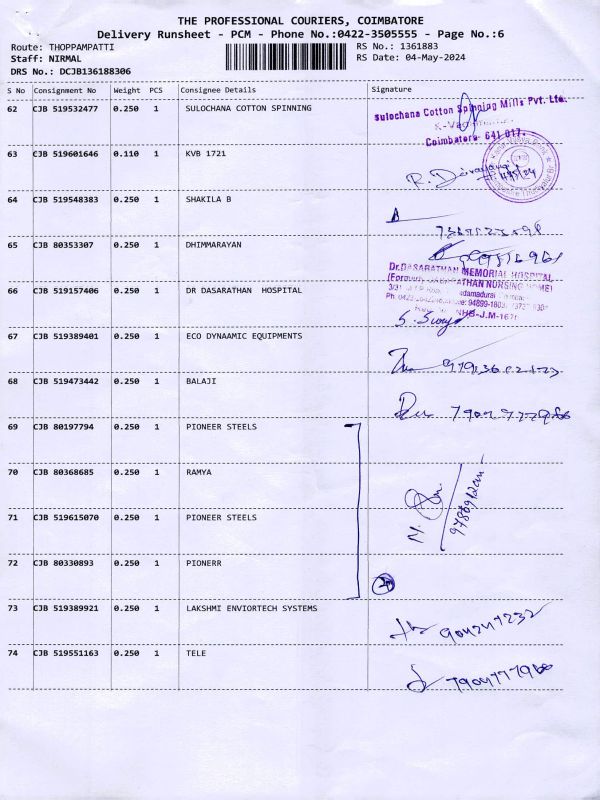 THE PROFESSIONAL COURIERS, COIMBATORE
Delivery Runsheet - PCM - Phone No.:0422-3505555 - Page No.:6
Route: THOPPAMPATTI
Staff: NIRMAL
DRS No.: DCJB136188306
RS No.: 1361883
RS Date: 04-May-2024
S No Consignment No Weight PCS Consignee Details Signature
62 CJB 519532477 0.250 1 SULOCHANA COTTON SPINNING
Sulochana Cotton Spinning Mills Pvt. Ltd.
Coimbatore- 641 017.
63 CJB 519601646 0.110 1 KVB 1721
64 CJB 519548383 0.250 1 SHAKILA B
65 CJB 80353307 0.250 1 DHIMMARAYAN
Dr.DASARATHAN MEMORIAL HOSPITAL
66 CJB 519157406 0.250 1 DR DASARATHAN HOSPITAL
67 CJB 519389401 0.250 1 ECO DYNAAMIC EQUIPMENTS
68 CJB 519473442 0.250 1 BALAJI
69 CJB 80197794 0.250 1 PIONEER STEELS
70 CJB 80368685 0.250 1 RAMYA
71 CJB 519615070 0.250 1 PIONEER STEELS
72 CJB 80330893 0.250 1 PIONERR
73 CJB 519389921 0.250 1 LAKSHMI ENVIORTECH SYSTEMS
74 CJB 519551163 0.250 1 TELE